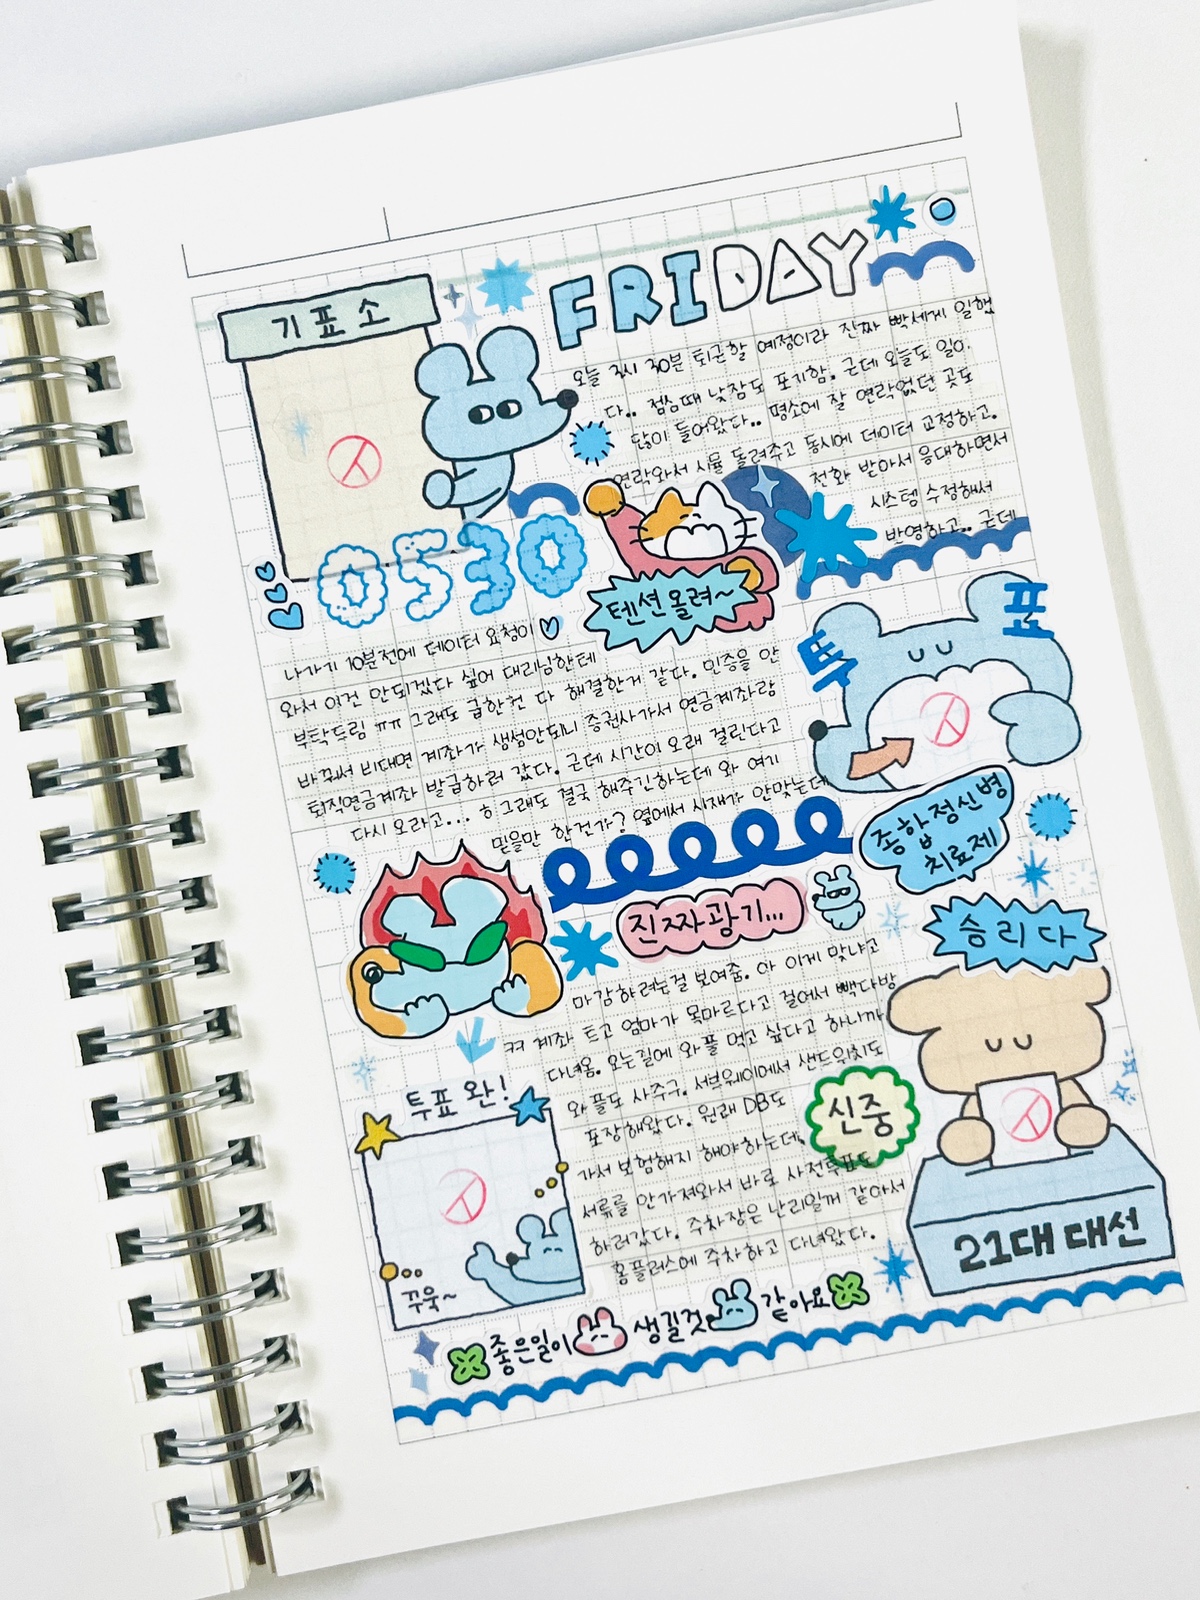 FRIDAY
기표소
오늘 3시 30분 퇴근할 예정이라 진짜 빡세게 일했
다.. 점심때 낮잠도 포기함. 근데 오늘도 일이
많이 들어왔다.. 평소에 잘 연락없던 곳도
연락와서 시뮬 돌려주고 동시에 데이터 교정하고.
전화 받아서 응대하면서
시스템 수정해서
반영하고.. 근데
0530
텐션올려~
나가기 10분전에 데이터 요청이
와서 이건 안되겠다 싶어 대리님한테
부탁드림 ㅠㅠ 그래도 급한건 다 해결한거 같다. 민증을 안
바꿔서 비대면 계좌가 생성안되니 증권사가서 연금계좌랑
퇴직연금계좌 발급하러 갔다. 근데 시간이 오래 걸린다고
다시 오라고... ㅎ 그래도 결국 해주긴하는데 와 여기
믿을만 한건가? 옆에서 시재가 안맞는데
투표
종합정신병
치료제
진짜광기...
승리다
마감하려는걸 보여줌. 아 이게 맞냐고
ㅋㅋ 계좌 트고 엄마가 목마르다고 걸어서 빽다방
다녀옴. 오는길에 와플 먹고 싶다고 하니까
와플도 사주구. 서브웨이에서 샌드위치도
포장해왔다. 원래 DB도
가서 보험해지 해야하는데,
서류를 안가져와서 바로 사전투표도
하러갔다. 주차장은 난리일꺼 같아서
홈플러스에 주차하고 다녀왔다.
신중
투표 완!
꾸욱~
21대 대선
좋은일이 생길것 같아요